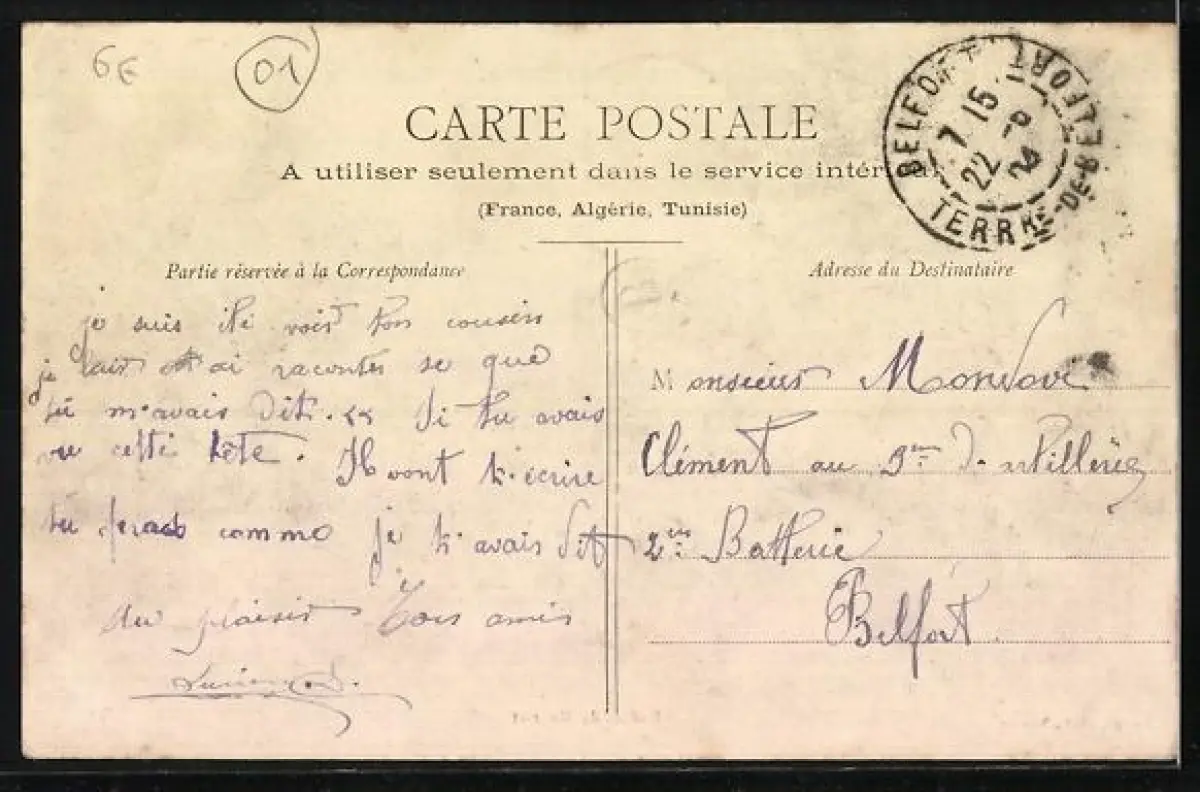 6€
01
CARTE POSTALE
A utiliser seulement dans le service intérieur
(France, Algérie, Tunisie)
BELFORT TERRRE-DE-BELFORT
7 15
22 -8
04
Partie réservée à la Correspondance
je suis été voir ton cousin
je lair ai raconter se que
tu m'avais dit. Si tu avais
vu cette tête. Il vont t'écrire
tu feras comme je t'avais dit
au plaisir Tous amis
Adresse du Destinataire
Monsieur Mondovi
Clément au 9me d'artillerie
2me Batterie
Belfort